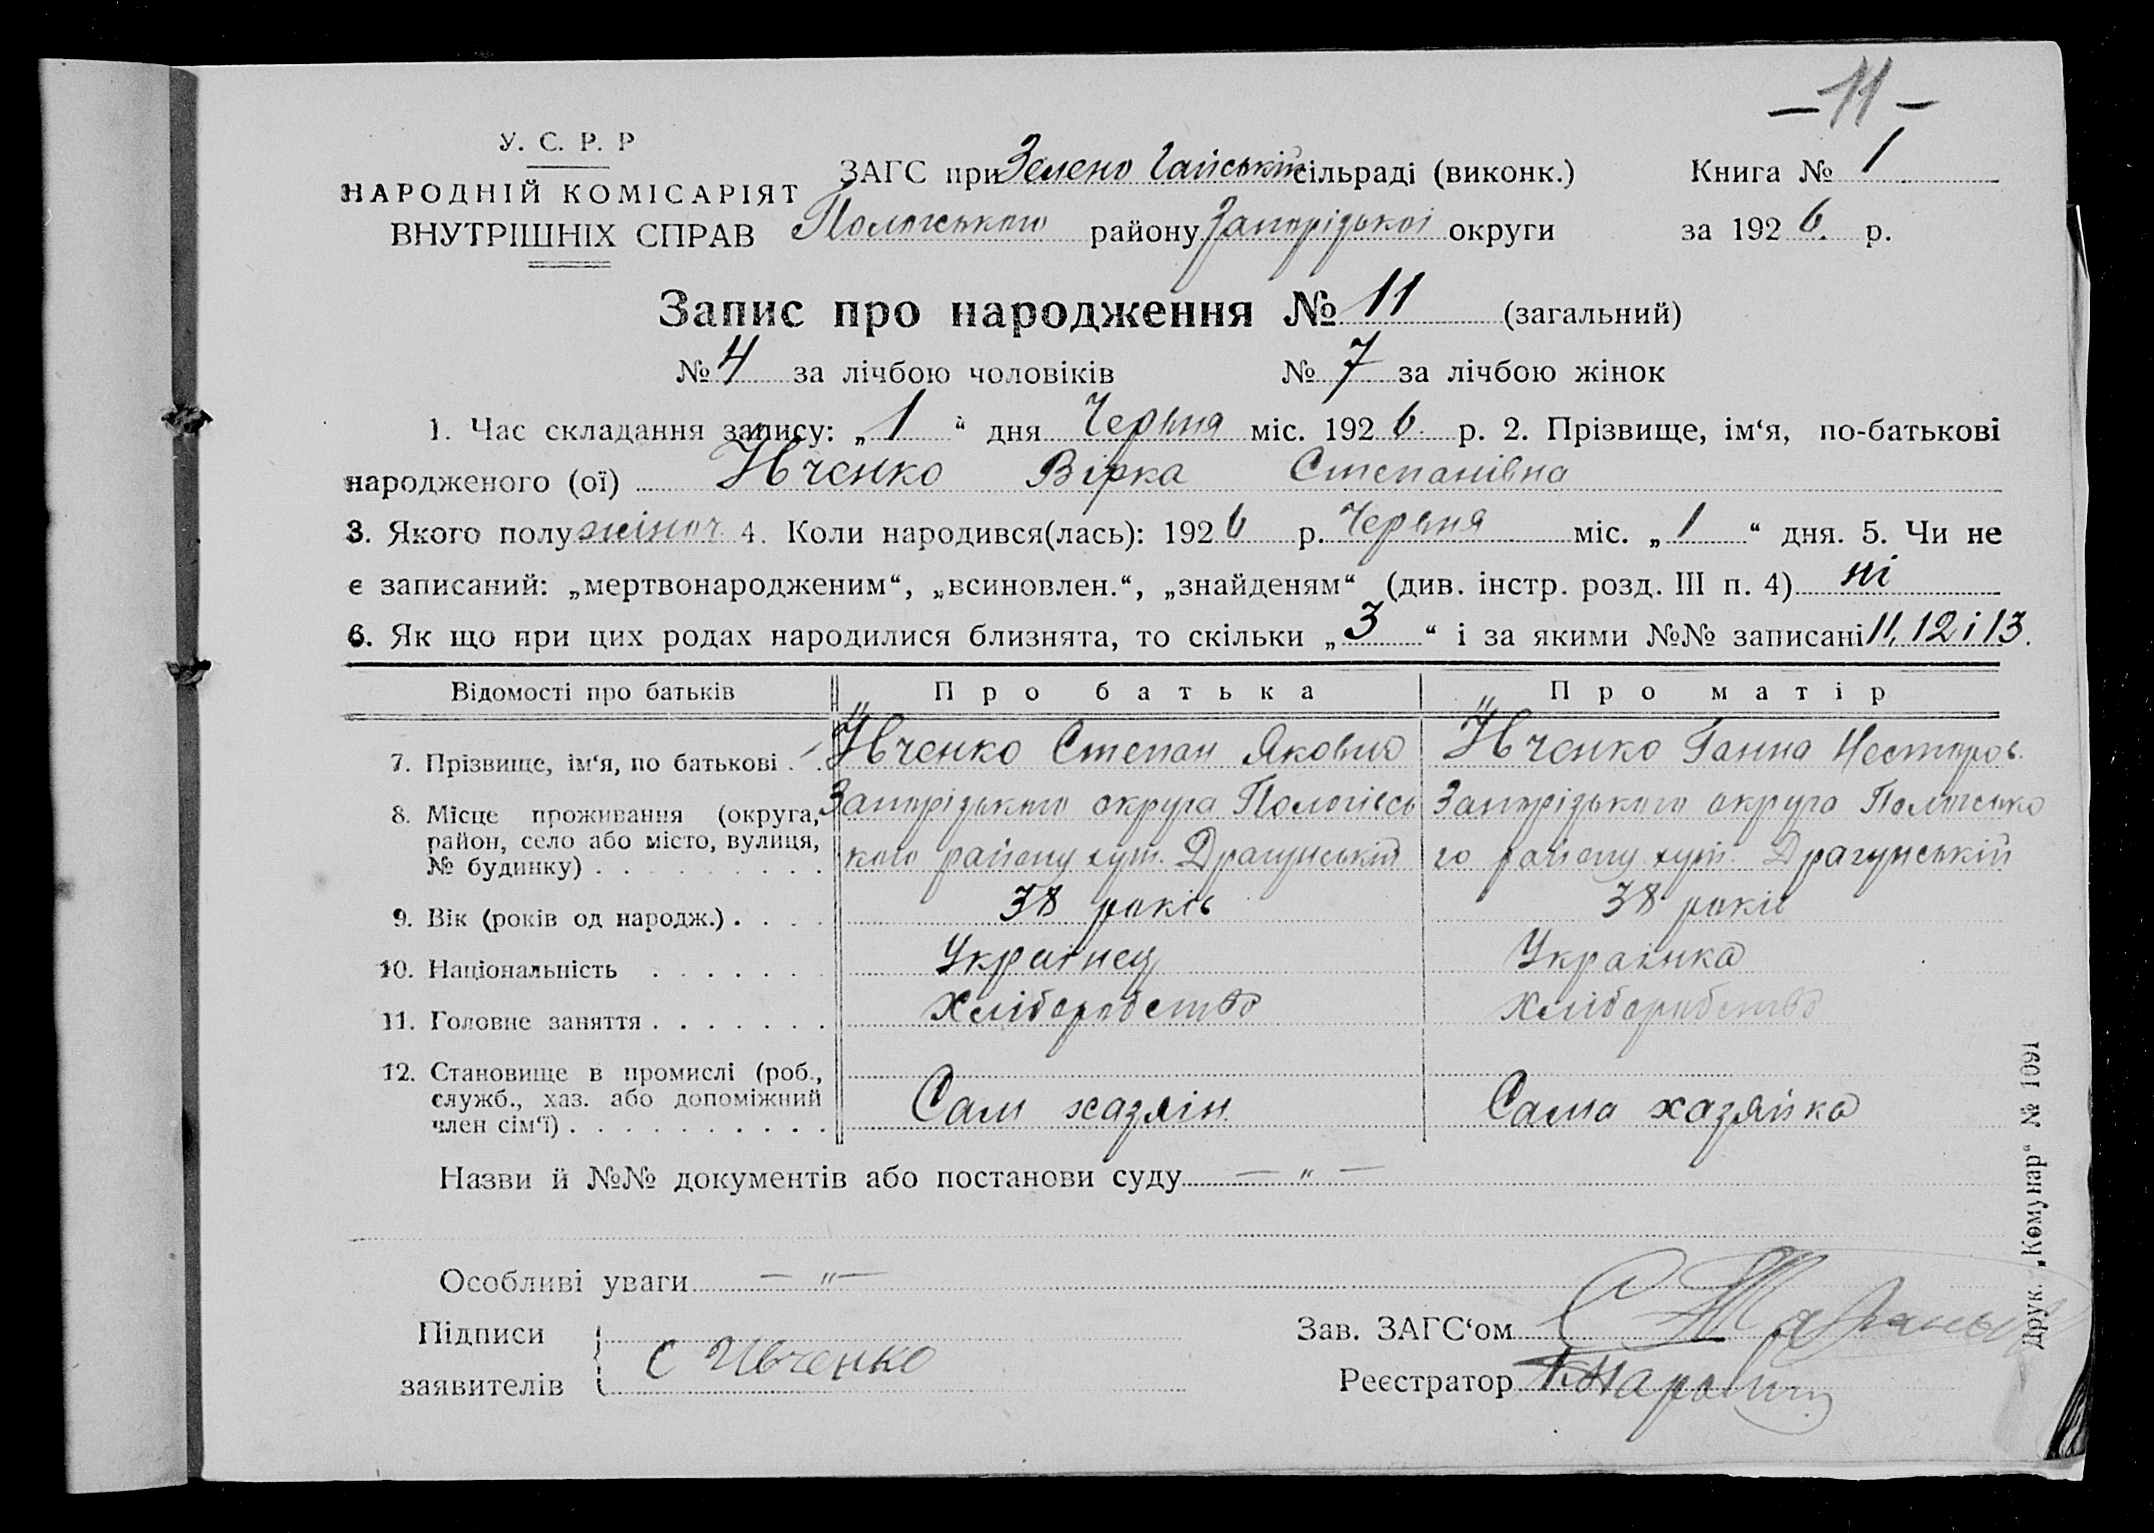 — 11 —
У. С. Р. Р
НАРОДНІЙ КОМІСАРІЯТ
ВНУТРІШНІХ СПРАВ
ЗАГС при Зелено Гайській сільраді (виконк.)
Пологського району Запорізької округи
Книга № 1
за 1926. р.
Запис про народження № 11 (загальний)
№ 4 за лічбою чоловіків № 7 за лічбою жінок
1. Час складання запису: „ 1 “ дня Червня міс. 1926. р. 2. Прізвище, ім‘я, по-батькові
народженого (ої) Ївченко Вірка Степанівна
3. Якого полу жіноч. 4. Коли народився(лась): 1926 р. Червня міс. „ 1 “ дня. 5. Чи не
є записаний: „мертвонародженим“, „всиновлен.“, „знайденям“ (див. інстр. розд. III п. 4) ні
6. Як що при цих родах народилися близнята, то скільки „ 3 “ і за якими №№ записані 11, 12 і 13.
Відомості про батьків Про батька Про матір
7. Прізвище, ім‘я, по батькові . . Ївченко Степан Якович Ївченко Ганна Несторов.
8. Місце проживання (округа, район, село або місто, вулиця, № будинку) . . . . . . . . . .
Запорізького округа Пологівсь
кого району хут. Драгунський
Запорізького округа Пологсько
го району хут. Драгунській
9. Вік (років од народж.) . . . . 38 років 38 років
10. Національність . . . . . . . Українец Українка
11. Головне заняття . . . . . . . Хліборобство Хліборобство
12. Становище в промислі (роб., служб., хаз. або допоміжний член сім‘ї) . . . . . . . . . . .
Сам хазяін Сама хазяйка
Назви й №№ документів або постанови суду — „ —
Особливі уваги — „ —
Підписи
заявителів
С Ивченко
Зав. ЗАГС‘ом
Реєстратор
Друк. „Комунар“ № 1091